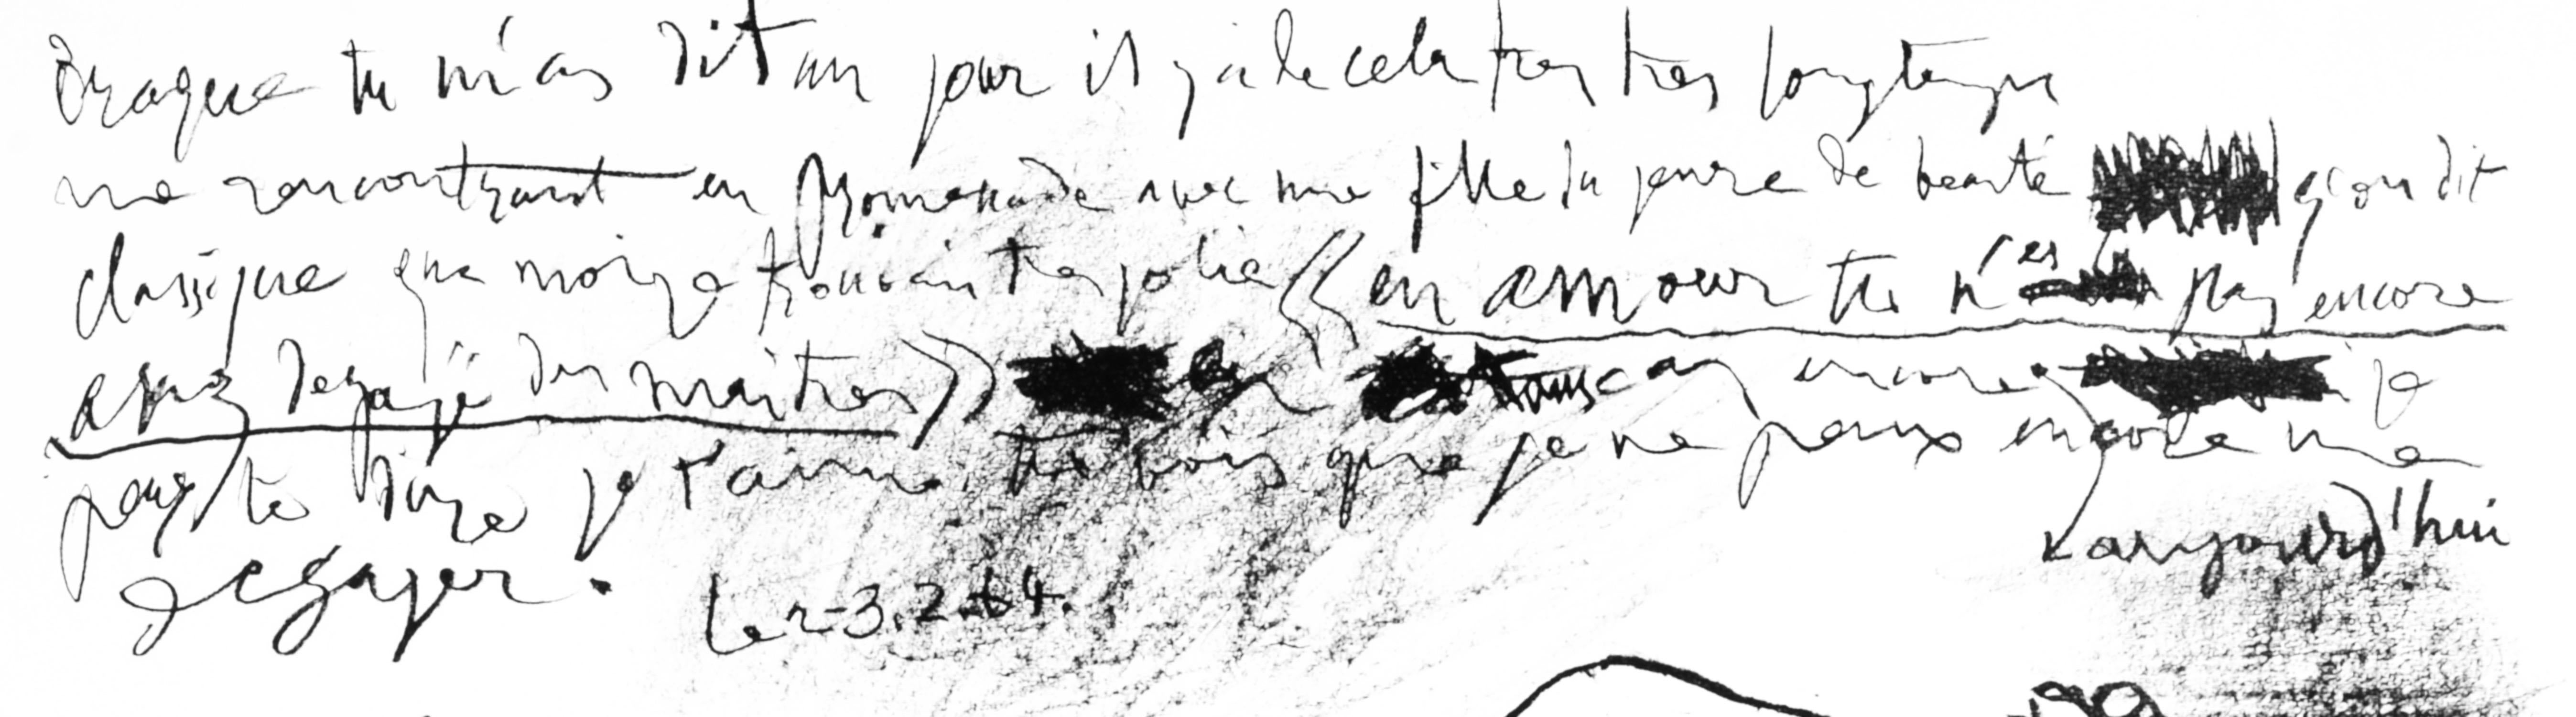 Braque tu m'as dit un jour il y a de cela tres tres longtemps
me rencontrant en promenade avec une fille du genre de beauté qu'on dit
classique que moi je trouvais tres jolie « en amour tu n'es pas encore
assez degagé des maitres » encore je
peux te dire je t'aime, tu vois que je ne peux encore me
aujourd'hui
degager.
le 2-3.2.64.